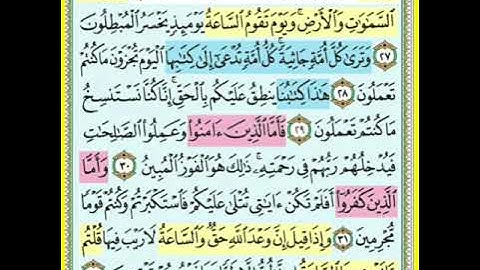 السَّمَٰوَٰتِ وَالْأَرْضِ ۚ وَيَوْمَ تَقُومُ السَّاعَةُ يَوْمَئِذٍ يَخْسَرُ الْمُبْطِلُونَ
٢٧ وَتَرَىٰ كُلَّ أُمَّةٍ جَاثِيَةً ۚ كُلُّ أُمَّةٍ تُدْعَىٰ إِلَىٰ كِتَٰبِهَا الْيَوْمَ تُجْزَوْنَ مَا كُنتُمْ
تَعْمَلُونَ ٢٨ هَٰذَا كِتَٰبُنَا يَنطِقُ عَلَيْكُم بِالْحَقِّ ۚ إِنَّا كُنَّا نَسْتَنسِخُ
مَا كُنتُمْ تَعْمَلُونَ ٢٩ فَأَمَّا الَّذِينَ ءَامَنُوا وَعَمِلُوا الصَّٰلِحَٰتِ
فَيُدْخِلُهُمْ رَبُّهُمْ فِي رَحْمَتِهِ ۚ ذَٰلِكَ هُوَ الْفَوْزُ الْمُبِينُ ٣٠ وَأَمَّا
الَّذِينَ كَفَرُوا أَفَلَمْ تَكُنْ ءَايَٰتِي تُتْلَىٰ عَلَيْكُمْ فَاسْتَكْبَرْتُمْ وَكُنتُمْ قَوْمًا
مُّجْرِمِينَ ٣١ وَإِذَا قِيلَ إِنَّ وَعْدَ اللَّهِ حَقٌّ وَالسَّاعَةُ لَا رَيْبَ فِيهَا قُلْتُم